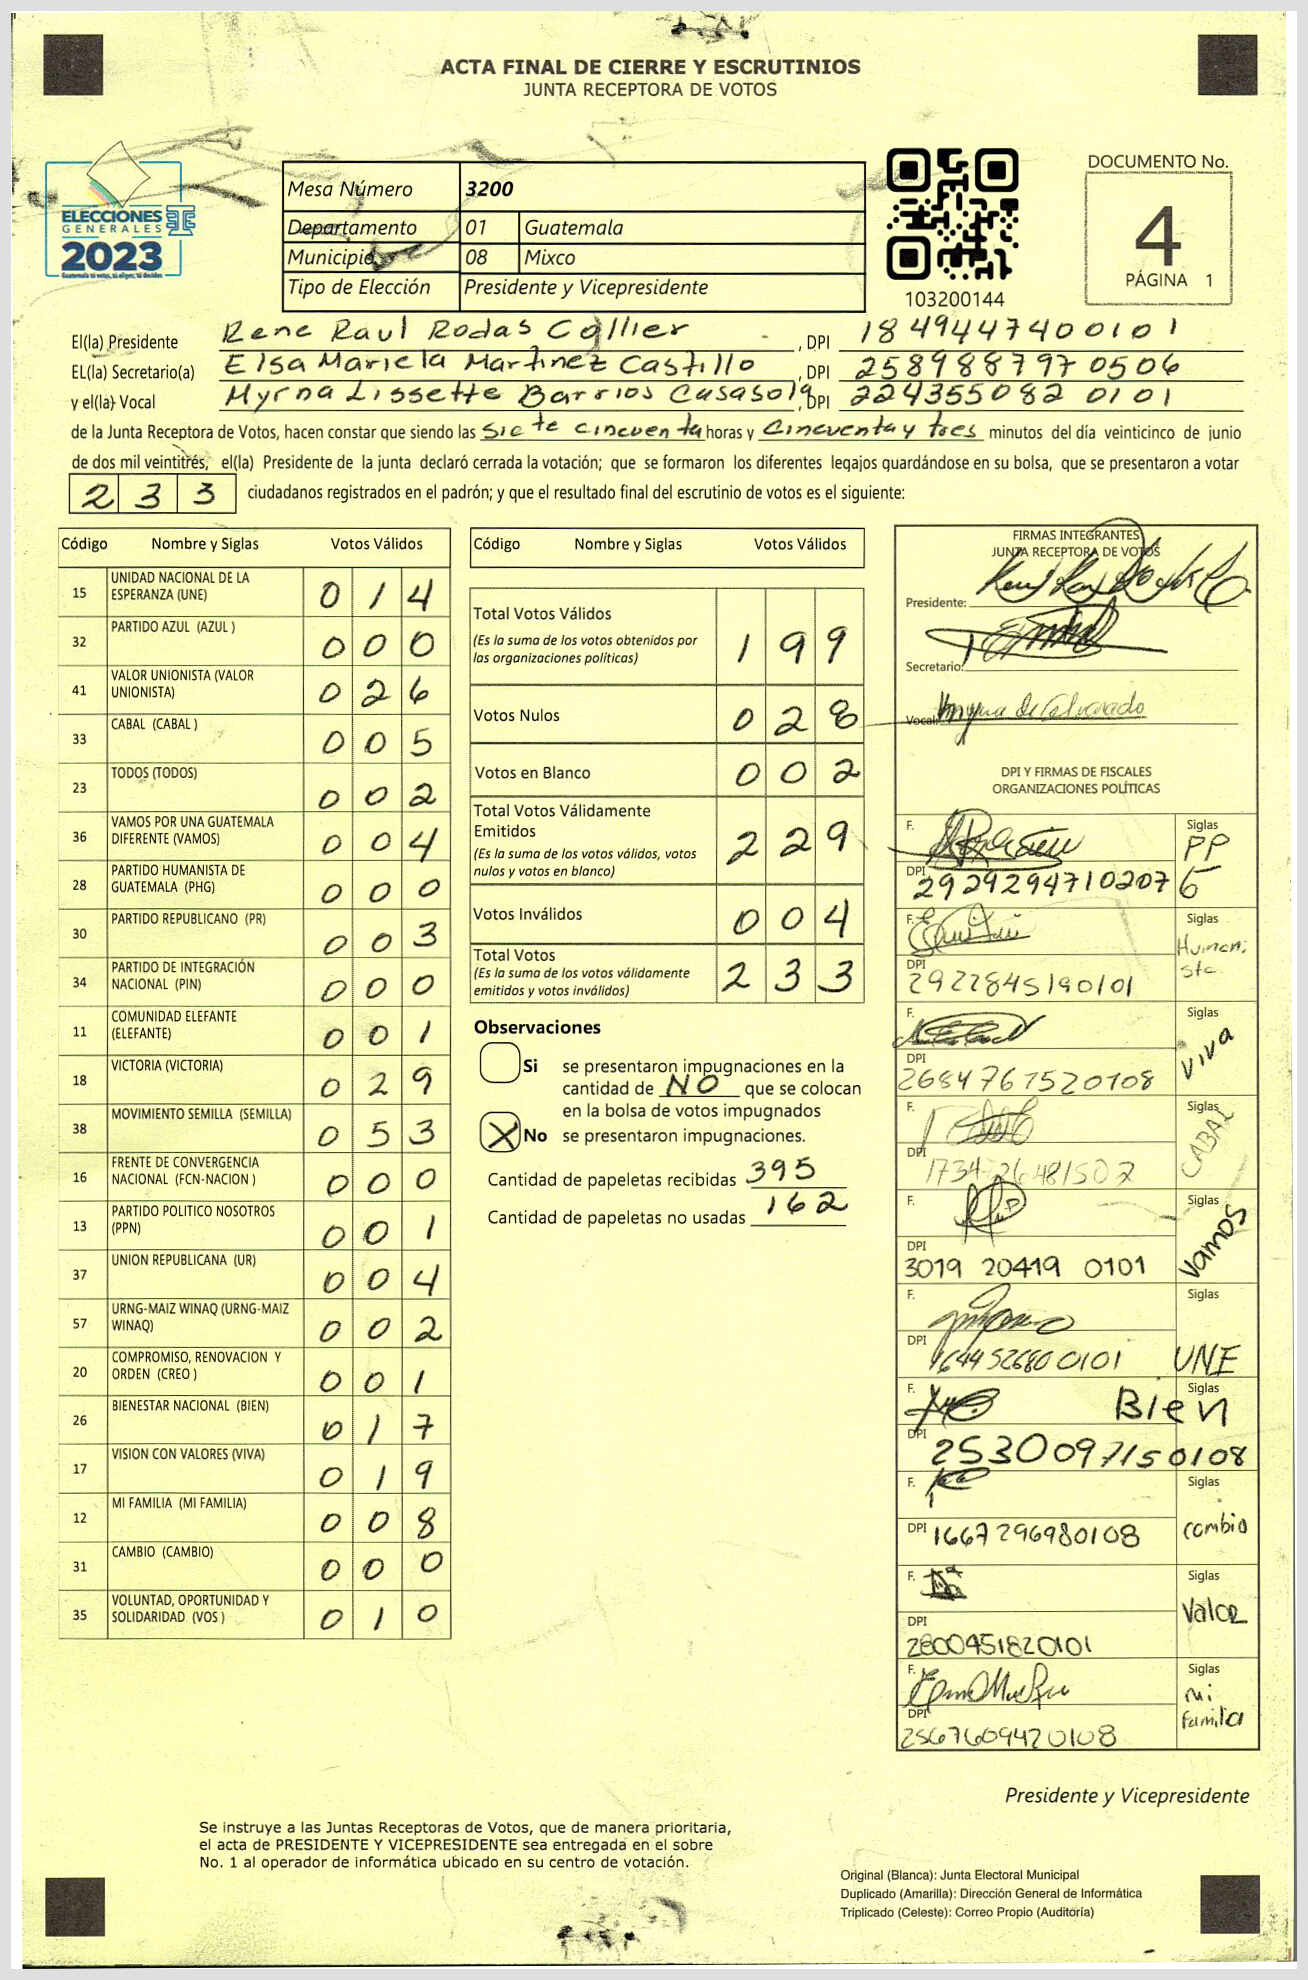 ACTA FINAL DE CIERRE Y ESCRUTINIOS
JUNTA RECEPTORA DE VOTOS
ELECCIONES
GENERALES
2023
Mesa Número 3200
Departamento 01 Guatemala
Municipio 08 Mixco
Tipo de Elección Presidente y Vicepresidente
103200144
DOCUMENTO No.
4
PÁGINA 1
El(la) Presidente Rene Raul Rodas Collier, DPI 1849447400101
EL(la) Secretario(a) Elsa Mariela Martinez Castillo, DPI 2589887970506
y el(la) Vocal Myrna Lissette Barrios Casasola, DPI 2243550820101
de la Junta Receptora de Votos, hacen constar que siendo las siete cincuenta horas y cincuenta y tres minutos del día veinticinco de junio
de dos mil veintitrés, el(la) Presidente de la junta declaró cerrada la votación; que se formaron los diferentes legajos guardándose en su bolsa, que se presentaron a votar
233 ciudadanos registrados en el padrón; y que el resultado final del escrutinio de votos es el siguiente:
Código Nombre y Siglas Votos Válidos
15 UNIDAD NACIONAL DE LA ESPERANZA (UNE) 014
32 PARTIDO AZUL (AZUL ) 000
41 VALOR UNIONISTA (VALOR UNIONISTA) 026
33 CABAL (CABAL ) 005
23 TODOS (TODOS) 002
36 VAMOS POR UNA GUATEMALA DIFERENTE (VAMOS) 004
28 PARTIDO HUMANISTA DE GUATEMALA (PHG) 000
30 PARTIDO REPUBLICANO (PR) 003
34 PARTIDO DE INTEGRACIÓN NACIONAL (PIN) 000
11 COMUNIDAD ELEFANTE (ELEFANTE) 001
18 VICTORIA (VICTORIA) 029
38 MOVIMIENTO SEMILLA (SEMILLA) 053
16 FRENTE DE CONVERGENCIA NACIONAL (FCN-NACION ) 000
13 PARTIDO POLITICO NOSOTROS (PPN) 001
37 UNION REPUBLICANA (UR) 004
57 URNG-MAIZ WINAQ (URNG-MAIZ WINAQ) 002
20 COMPROMISO, RENOVACION Y ORDEN (CREO ) 001
26 BIENESTAR NACIONAL (BIEN) 017
17 VISION CON VALORES (VIVA) 019
12 MI FAMILIA (MI FAMILIA) 008
31 CAMBIO (CAMBIO) 000
35 VOLUNTAD, OPORTUNIDAD Y SOLIDARIDAD (VOS ) 010
Código Nombre y Siglas Votos Válidos
Total Votos Válidos 199
(Es la suma de los votos obtenidos por
las organizaciones políticas)
Votos Nulos 028
Votos en Blanco 002
Total Votos Válidamente
Emitidos 229
(Es la suma de los votos válidos, votos
nulos y votos en blanco)
Votos Inválidos 004
Total Votos 233
(Es la suma de los votos válidamente
emitidos y votos inválidos)
Observaciones
Si se presentaron impugnaciones en la
cantidad de NO que se colocan
en la bolsa de votos impugnados
X No se presentaron impugnaciones.
Cantidad de papeletas recibidas 395
Cantidad de papeletas no usadas 162
FIRMAS INTEGRANTES
JUNTA RECEPTORA DE VOTOS
Presidente:
Secretario:
Vocal: Myrna de Alvarado
DPI Y FIRMAS DE FISCALES
ORGANIZACIONES POLÍTICAS
F. Siglas PP
DPI 2929294710207
F. Siglas Humanista
DPI 2922845190101
F. Siglas Viva
DPI 2684767520108
F. Siglas CABAL
DPI
F. Siglas Vamos
DPI 3019 20419 0101
F. Siglas UNE
DPI 1644526800101
F. Siglas Bien
DPI 2530097150108
F. Siglas cambio
DPI 1667296980108
F. Siglas Valor
DPI 2800451820101
F. Siglas mi familia
DPI 2567609420108
Presidente y Vicepresidente
Se instruye a las Juntas Receptoras de Votos, que de manera prioritaria,
el acta de PRESIDENTE Y VICEPRESIDENTE sea entregada en el sobre
No. 1 al operador de informática ubicado en su centro de votación.
Original (Blanca): Junta Electoral Municipal
Duplicado (Amarilla): Dirección General de Informática
Triplicado (Celeste): Correo Propio (Auditoría)